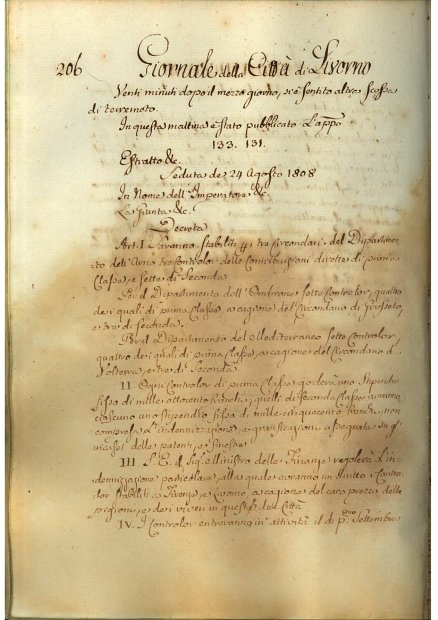 206 Giornale della Città di Livorno
Venti minuti dopo il mezzo giorno, si è sentito altra scossa
di terremoto.
In questa mattina è stato pubblicato l'app.°
133. 131.
Estratto &c.
Seduta de 24 Agosto 1808
In Nome dell'Imperatore &c.
La Giunta &c.
Decreta
Art. I. Saranno stabiliti p i tre circondari del Dipartimen-
to dell'Arno tre Controlor delle Contribuzioni dirette di prima
Classe, e sette di Seconda
Per il Dipartimento dell'Ombrone sette Controlor, quattro
de i quali di prima Classe, a cagione del Circondario di Grosseto,
e tre di Seconda.
Per il Dipartimento del Mediterraneo sette Controlor
quattro dei quali di prima Classe, a cagione del Circondario di
Volterra, e tre di Seconda
II. Ogni Controlor di prima Classe goderà uno Stipendio
fisso di mille ottocento franchi; quelli di seconda Classe avranno
ciascuno uno stipendio fisso di mille cinquecento franchi, non
compresa l'indennizzazione, e gratificazione assegnata su gl'
incassi delle patenti, e finestre
III. S. E. il Sig. Ministro delle Finanze regolerà l'in-
dennizzazione particolare, alla quale avranno un diritto i Contro-
lor stabiliti a Firenze, e Livorno, a cagione del caro prezzo delle
pigioni, e dei viveri in queste due Città
IV. I Controlor entreranno in attività il dì p.mo Settembre